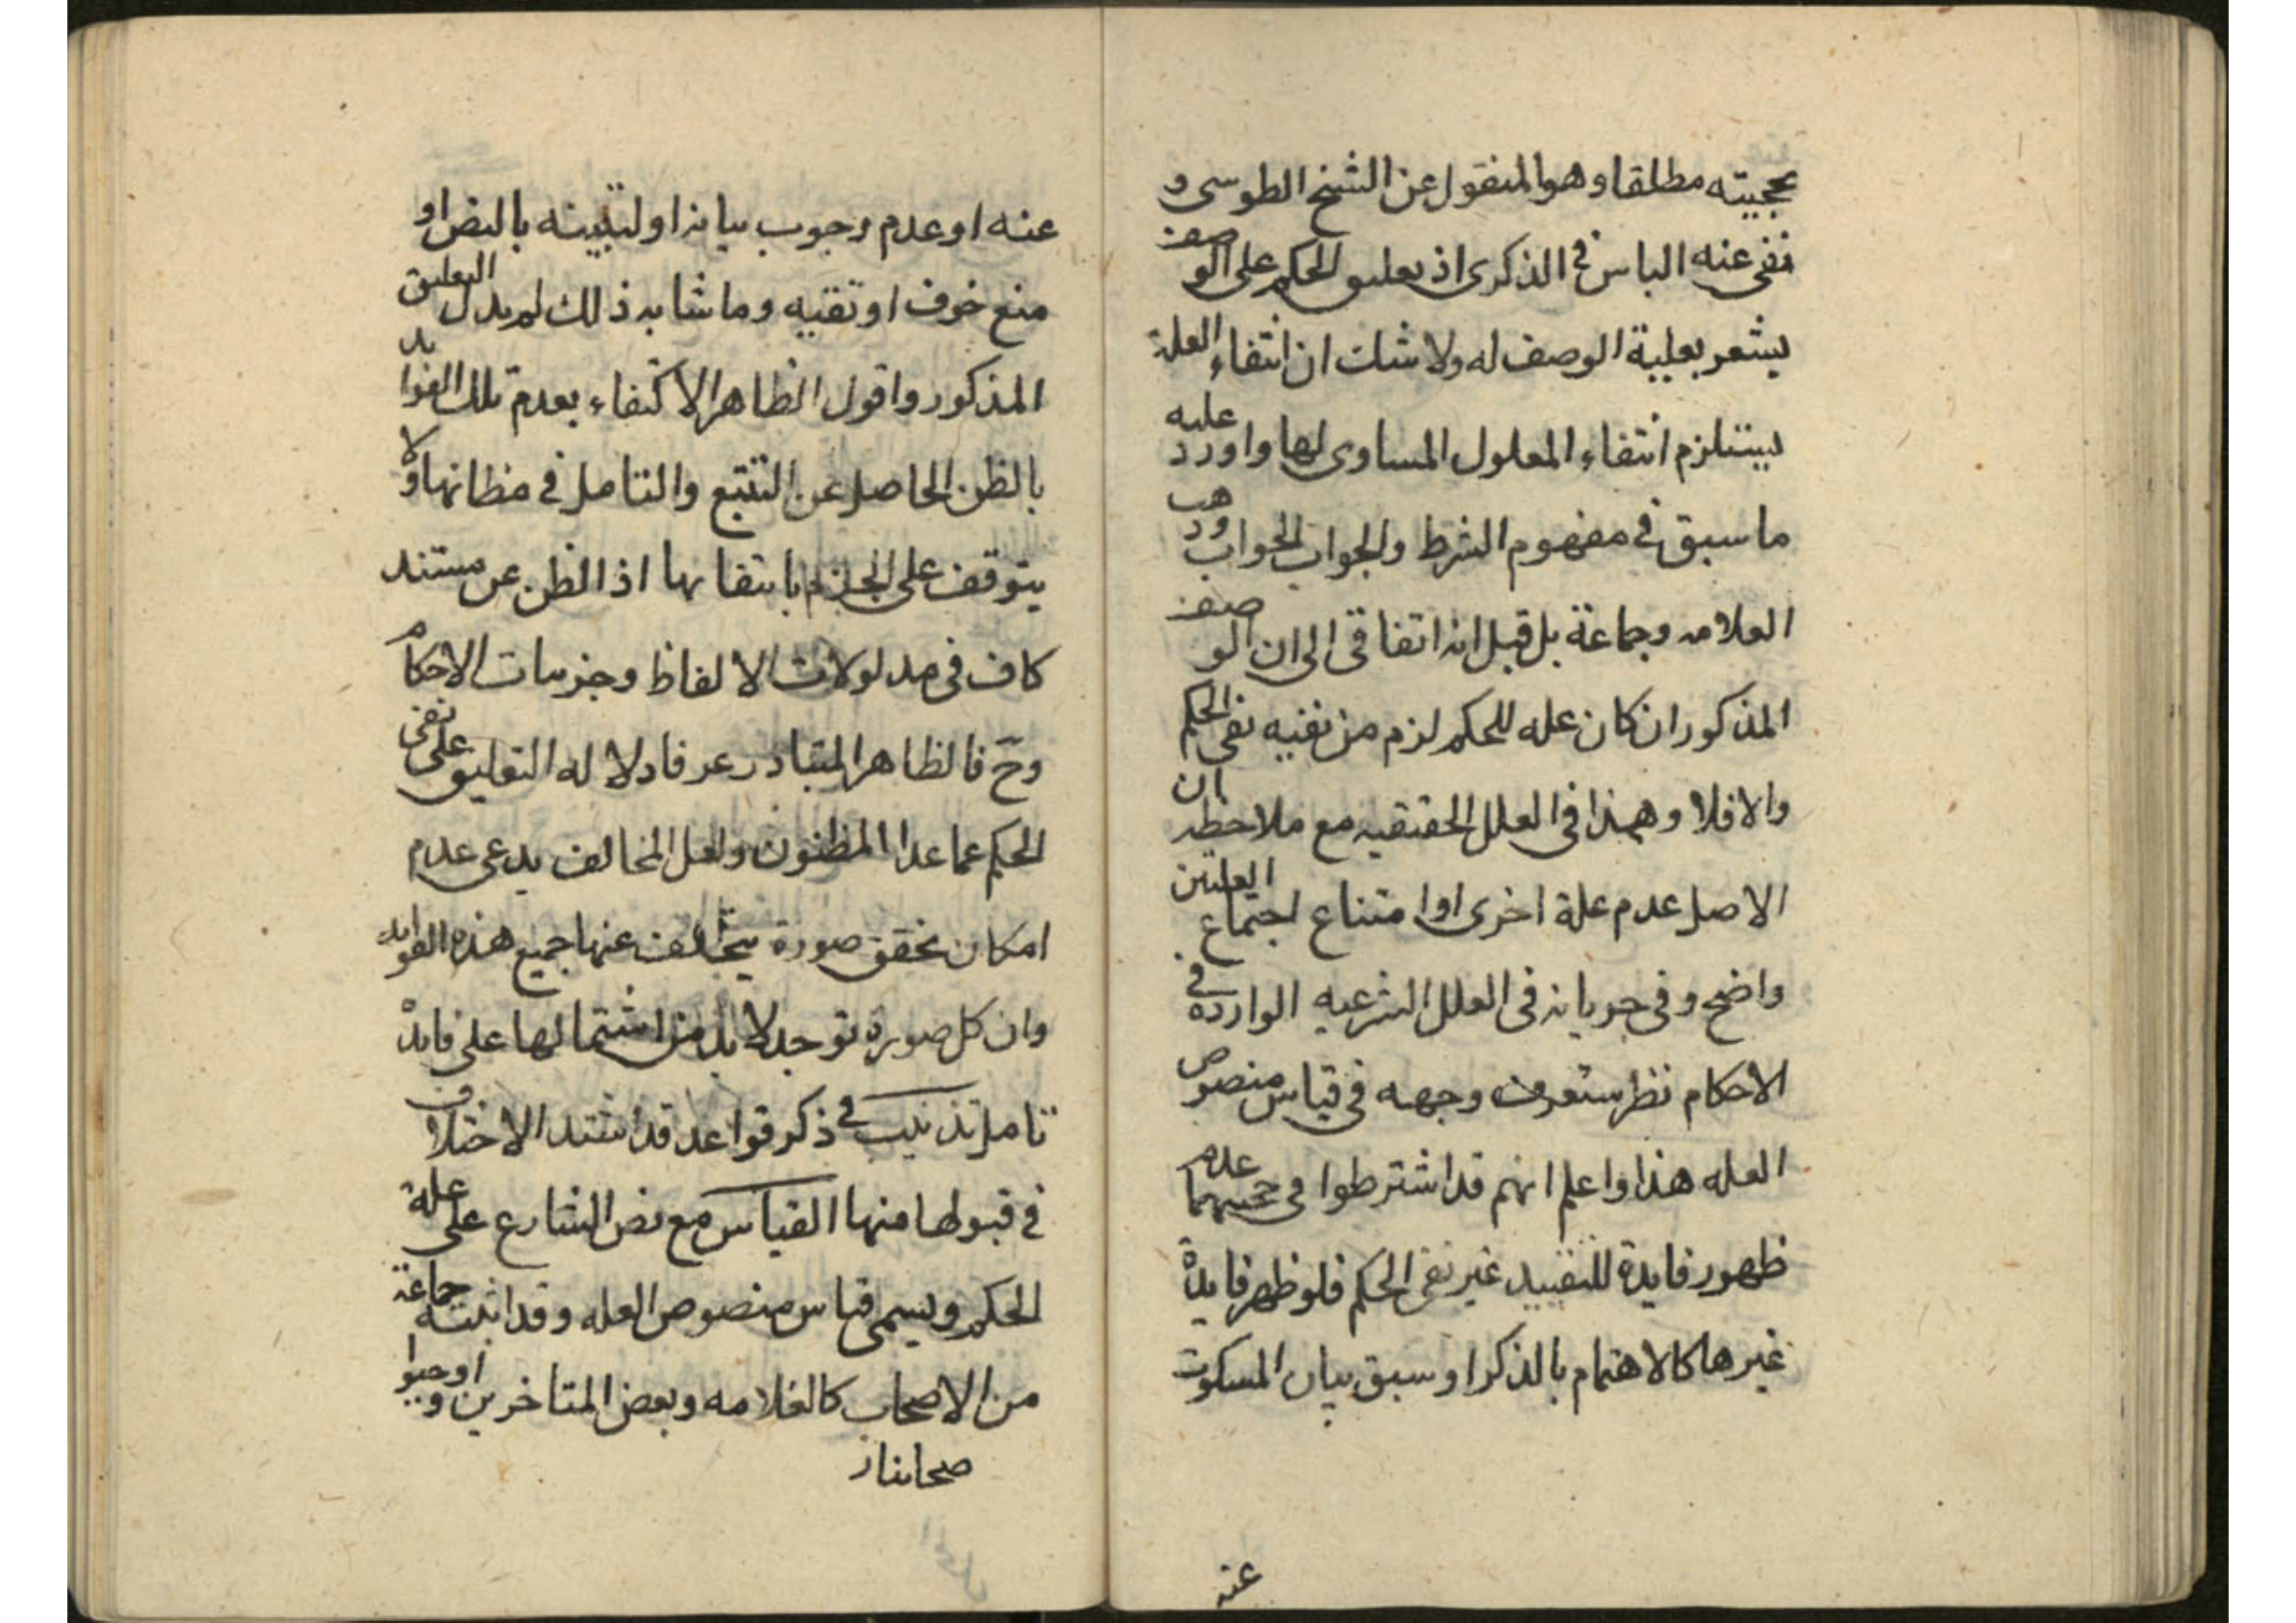 بحجيته مطلقا وهو المنقول عن الشيخ الطوسى و
نفى عنه الباس فى الذكرى اذ تعليق الحكم على الوصف
يشعر بعلية الوصف له ولا شك ان انتفاء العلة
يستلزم انتفاء المعلول المساوى لها واورد عليه
ما سبق فى مفهوم الشرط والجواب الجواب وذهب
العلامه وجماعة بل قيل انه اتفاقى الى ان الوصف
المذكور ان كان عله للحكم لزم من نفيه نفى الحكم
والا فلا وهذا فى العلل الحقيقيه مع ملاحظه ان
الاصل عدم علة اخرى او امتناع اجتماع العلتين
واضح وفى جريانه فى العلل الشرعيه الوارده فى
الاحكام نظر ستعرف وجهه فى قياس منصوص
العله هذا واعلم انهم قد اشترطوا فى عدم
ظهور فايدة للتقييد غير نفى الحكم فلو ظهر فايدة
غيرها كالاهتمام بالذكر او سبق بيان المسكوت
عنه
عنه او عدم وجوب بيانه او لتبيينه بالنص او
منع خوف او تقيه وما شابه ذلك لم يدل التعليق
المذكور واقول الظاهر الاكتفاء بعدم تلك الفوايد
بالظن الحاصل عن التتبع والتامل فى مظانها ولا
يتوقف على الجزم بانتفائها اذ الظن عن مستند
كاف فى مدلولات الالفاظ وجزييات الاحكام
وح فالظاهر المتبادر عرفا دلاله التعليق على نفى
الحكم عما عدا المظنون ولعل المخالف يدعى عدم
امكان تحقق صورة يتخلف عنها جميع هذه الفوايد
وان كل صورة توجد لا بد من اشتمالها على فايدة
تامل تذنيب فى ذكر قواعد قد اشتد الاختلاف
فى قبولها منها القياس مع نص الشارع على علة
الحكم ويسمى قياس منصوص العله وقد اثبته جماعة
من الاصحاب كالعلامه وبعض المتاخرين و